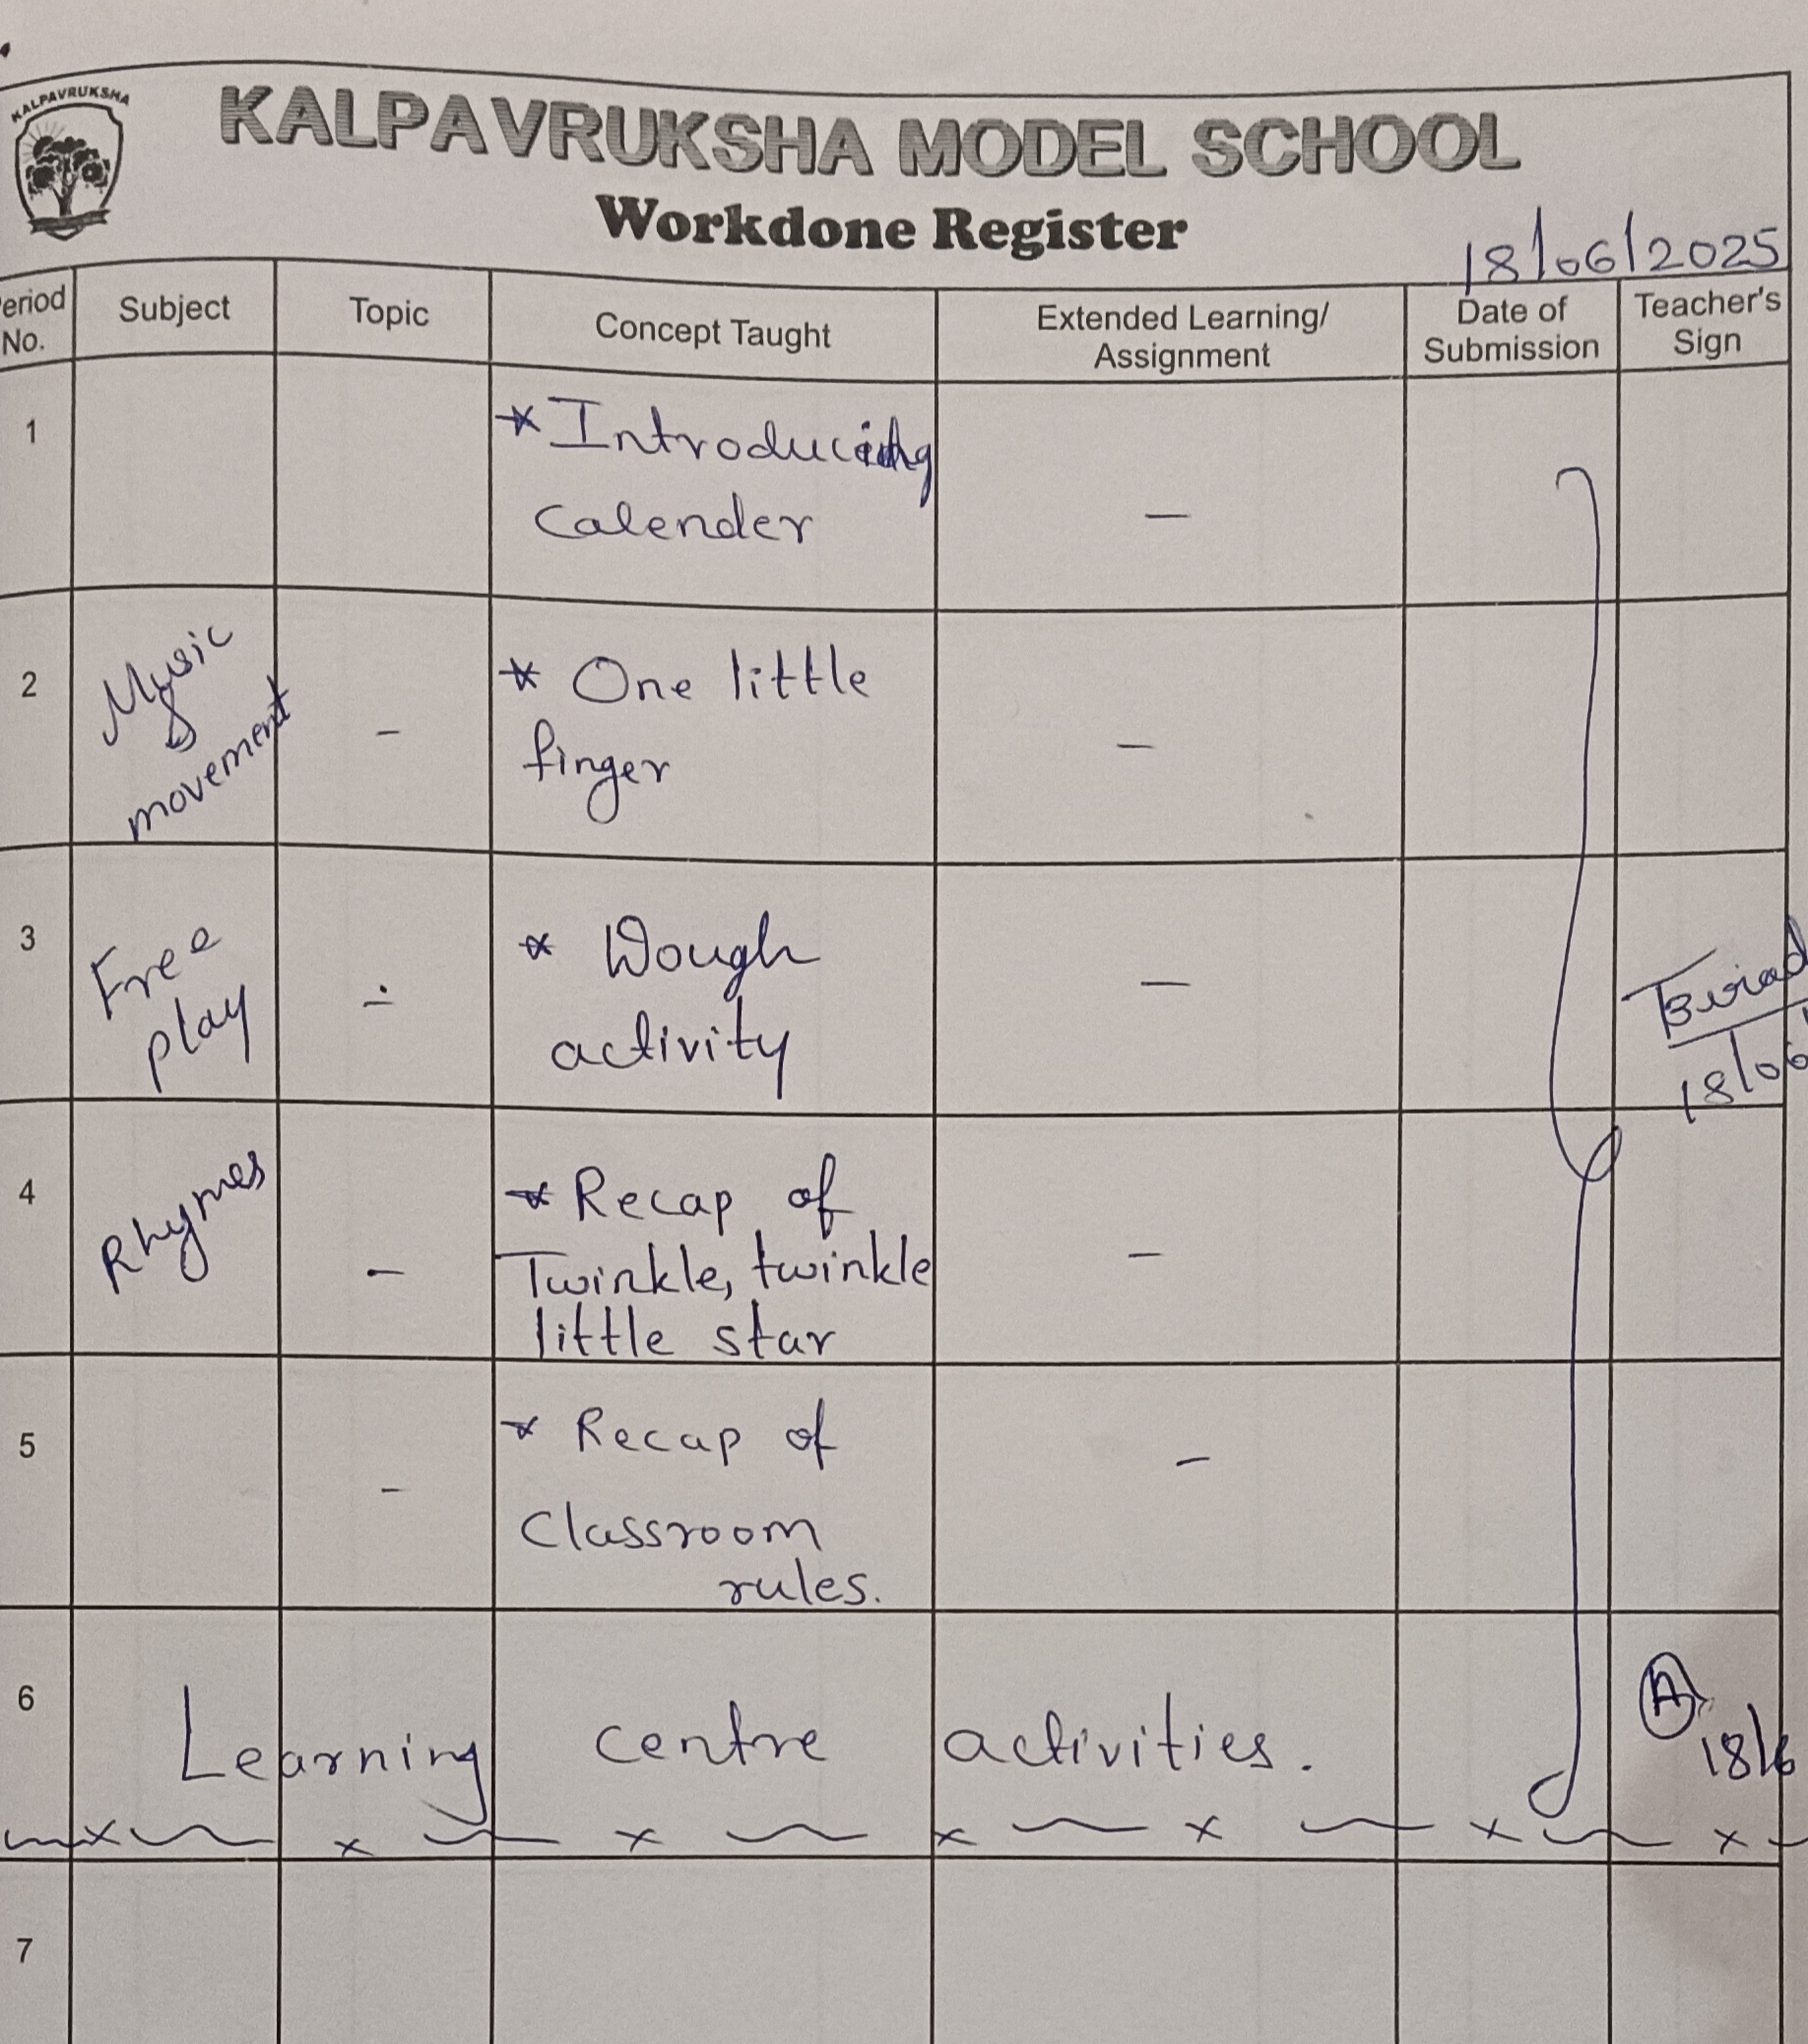 KALPAVRUKSHA
KALPAVRUKSHA MODEL SCHOOL
Workdone Register
18/06/2025
eriod No. Subject Topic Concept Taught Extended Learning/ Assignment Date of Submission Teacher's Sign
1 * Introducing
Calender –
2 Music & movement – * One little
finger –
3 Free play – * Dough
activity –
18/06
4 Rhymes – * Recap of
Twinkle, twinkle
little star –
5 – * Recap of
Classroom
rules. –
6 Learning centre activities. A 18/6
7